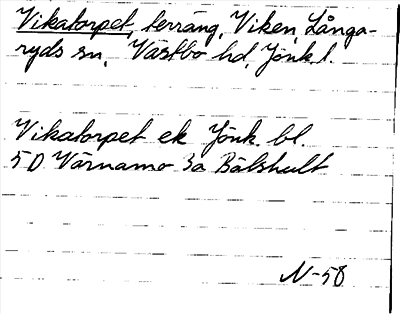 Vikatorpet, terräng, Viken, Långa-
ryds sn, Västbo hd, Jönk. l.
Vikatorpet ek Jönk. bl.
5D Värnamo 3a Bälshult
N-58